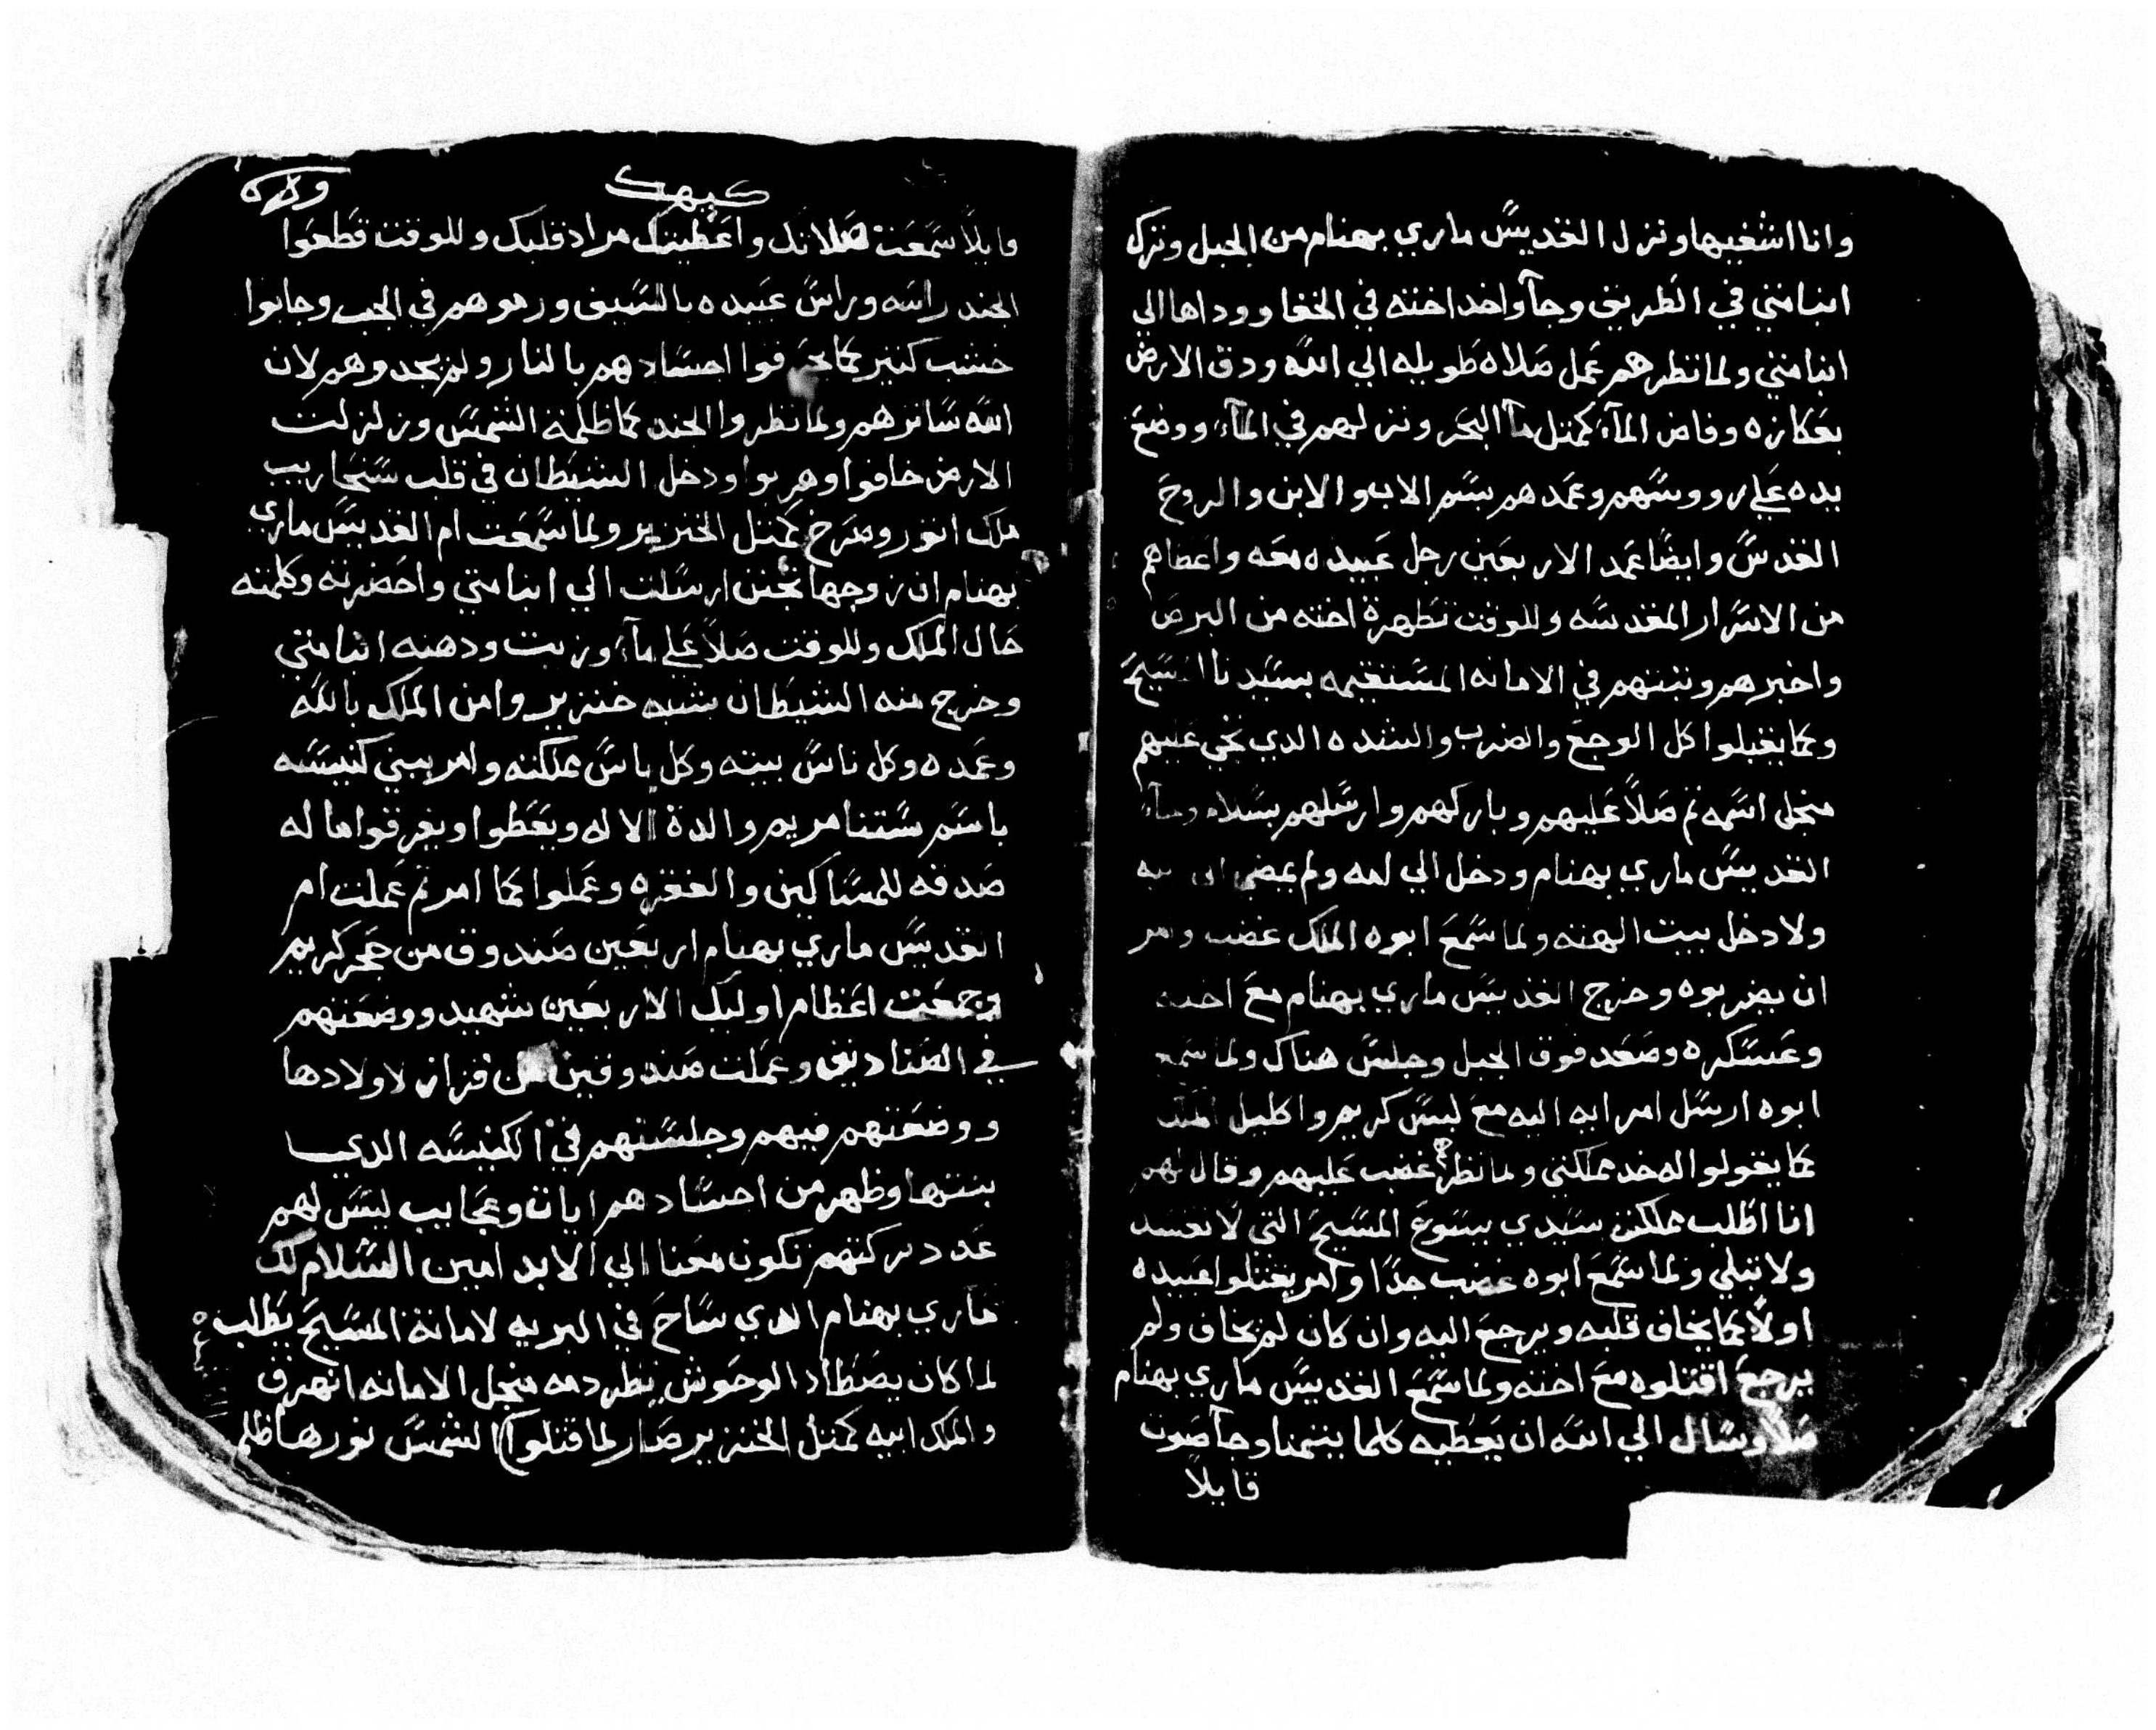 وانا اشفيها ونزل القديس ماري بهنام من الجبل ونزل
انبا متي في الطريق وجآ واخد اخته في الخفا ووداها الي
انبا متي ولما نظرهم عمل صلاه طويله الي الله ودق الارض
بعكازه وفاض المآء كمثل مآ البحر ونزلهم في المآء ووضع
يده علي رووسهم وعمدهم بسم الاب والابن والروح
القدس وايضا عمد الاربعين رجل عبيده معه واعطاهم
من الاسرار المقدسه وللوقت تطهرة اخته من البرص
واخبرهم وثبتهم في الامانه المستقيمه بسيدنا المسيح
وكما يقبلوا كل الوجع والضرب والشده الدي تجي عليهم
منجل اسمه تم صلاً عليهم وباركهم وارسلهم بسلام وجآء
القديس ماري بهنام ودخل الي امه ولم يمضي الي ابيه
ولا دخل بيت الهته ولما سمع ابوه الملك غضب وامر
ان يضربوه وخرج القديس ماري بهنام مع اخته
وعسكره وصعد فوق الجبل وجلس هناك ولما سمع
ابوه ارسل امرايه اليه مع لبس كريم واكليل الملك
كما يقولوا له خد مملكتي ولما نظرهم غضب عليهم وقال لهم
انا اطلب مملكة سيدي يسوع المسيح التي لا تفسد
ولا تبلي ولما سمع ابوه غضب جدا وامر يقتلوا عبيده
اولاً كما يخاف قلبه ويرجع اليه وان كان لم يخاف ولم
يرجع اقتلوه مع اخته ولما سمع القديس ماري بهنام
صلاً وسال الي الله ان يعطيه كلما يتمنا وجآ صوت
قايلاً
كيهك
قايلاً سمعت صلاتك واعطيتك مراد قلبك وللوقت قطعوا
الجند راسه وراس عبيده بالسيف ورموهم في الجب وجابوا
خشب كتير كما يحرقوا اجسادهم بالنار ولم يجدوهم لان
الله سانرهم ولما نظروا الجند كما ظلمة الشمس وزلزلت
الارض خافوا وهربوا ودخل الشيطان في قلب سنحاريب
ملك اتور وصرخ كمثل الخنزير ولما سمعت ام القديس ماري
بهنام ان زوجها تجنن ارسلت الي انبا متي واحضرته وكلمته
حال الملك وللوقت صلاً علي مآء وزيت ودهنه انبا متي
وخرج منه الشيطان بشبه خنزير وامن الملك بالله
وعمده وكل ناس بيته وكل ناس مملكته وامر يبني كنيسه
باسم ستنا مريم والدة الاله ويعطوا ويفرقوا ماله
صدقه للمساكين والفقره وعملوا كما امر تم عملت ام
القديس ماري بهنام اربعين صندوق من حجر كريم
وجمعت اعظام اوليك الاربعين شهيد ووضعتهم
في الصناديق وعملت صندوقين من قزاز لاولادها
ووضعتهم فيهم وجلستهم في الكنيسه الدي
بنتها وظهر من اجسادهم ايات وعجايب ليس لهم
عدد بركتهم تكون معنا الي الابد امين السلام لك
ماري بهنام الدي ساح في البريه لامانة المسيح يطلب
لما كان يصطاد الوحوش دمه منجل الامانه انهرق
والملك ابيه كمثل الخنزير صار لما قتلوا الشمس نورها ظلم